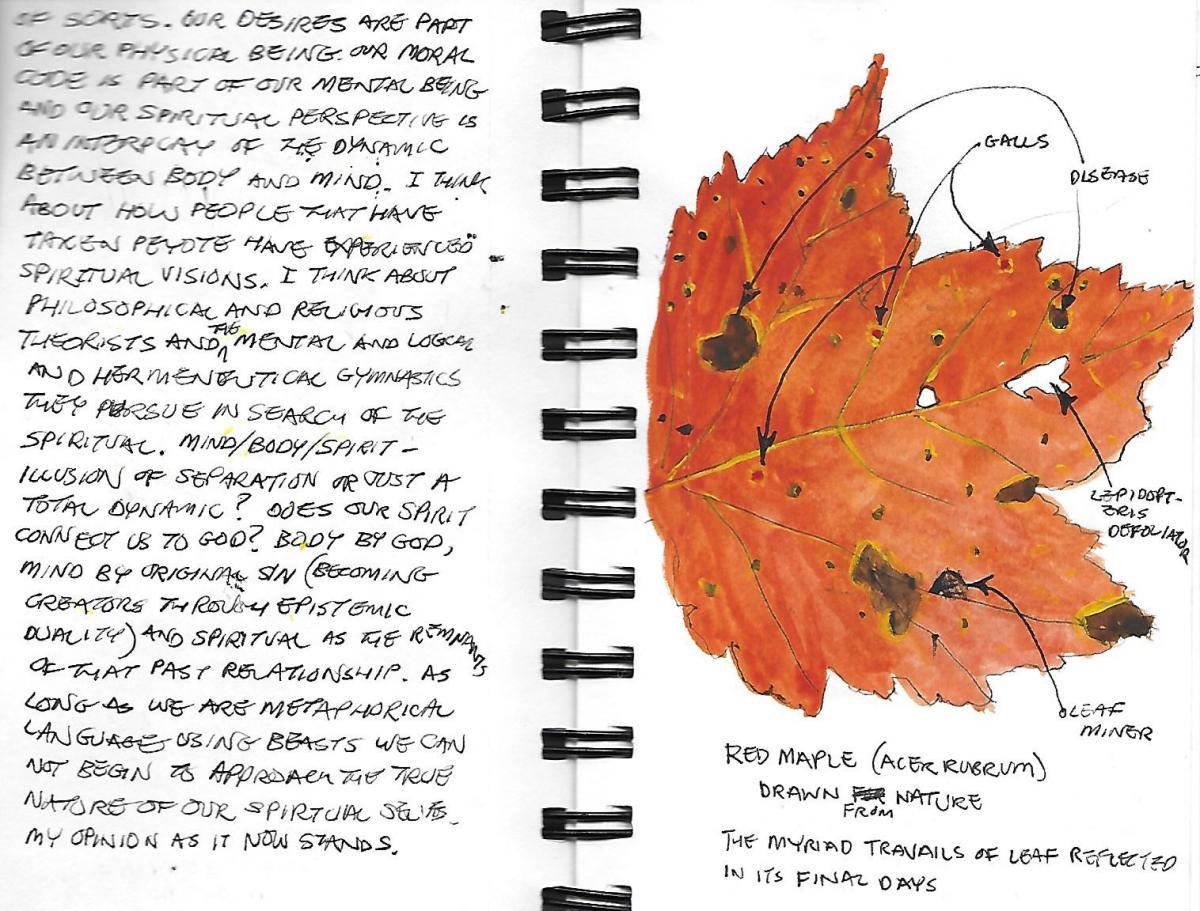 OF SORTS. OUR DESIRES ARE PART
OF OUR PHYSICAL BEING. OUR MORAL
CODE IS PART OF OUR MENTAL BEING
AND OUR SPIRITUAL PERSPECTIVE IS
AN INTERPLAY OF THE DYNAMIC
BETWEEN BODY AND MIND. I THINK
ABOUT HOW PEOPLE THAT HAVE
TAKEN PEYOTE HAVE EXPERIENCED
SPIRITUAL VISIONS. I THINK ABOUT
PHILOSOPHICAL AND RELIGIOUS
THEORISTS AND THE MENTAL AND LOGICAL
AND HERMENEUTICAL GYMNASTICS
THEY PERSUE IN SEARCH OF THE
SPIRITUAL. MIND/BODY/SPIRIT -
ILLUSION OF SEPARATION OR JUST A
TOTAL DYNAMIC? DOES OUR SPIRIT
CONNECT US TO GOD? BODY BY GOD,
MIND BY ORIGINAL SIN (BECOMING
CREATORS THROUGH EPISTEMIC
DUALITY) AND SPIRITUAL AS THE REMNANTS
OF THAT PAST RELATIONSHIP. AS
LONG AS WE ARE METAPHORICAL
LANGUAGE USING BEASTS WE CAN
NOT BEGIN TO APPROACH THE TRUE
NATURE OF OUR SPIRTUAL SELVES.
MY OPINION AS IT NOW STANDS.
GALLS
DISEASE
LEPIDOPT-
ERIS
DEFOLIATOR
LEAF
MINER
RED MAPLE (ACER RUBRUM)
DRAWN FROM NATURE
THE MYRIAD TRAVAILS OF LEAF REFLECTED
IN ITS FINAL DAYS